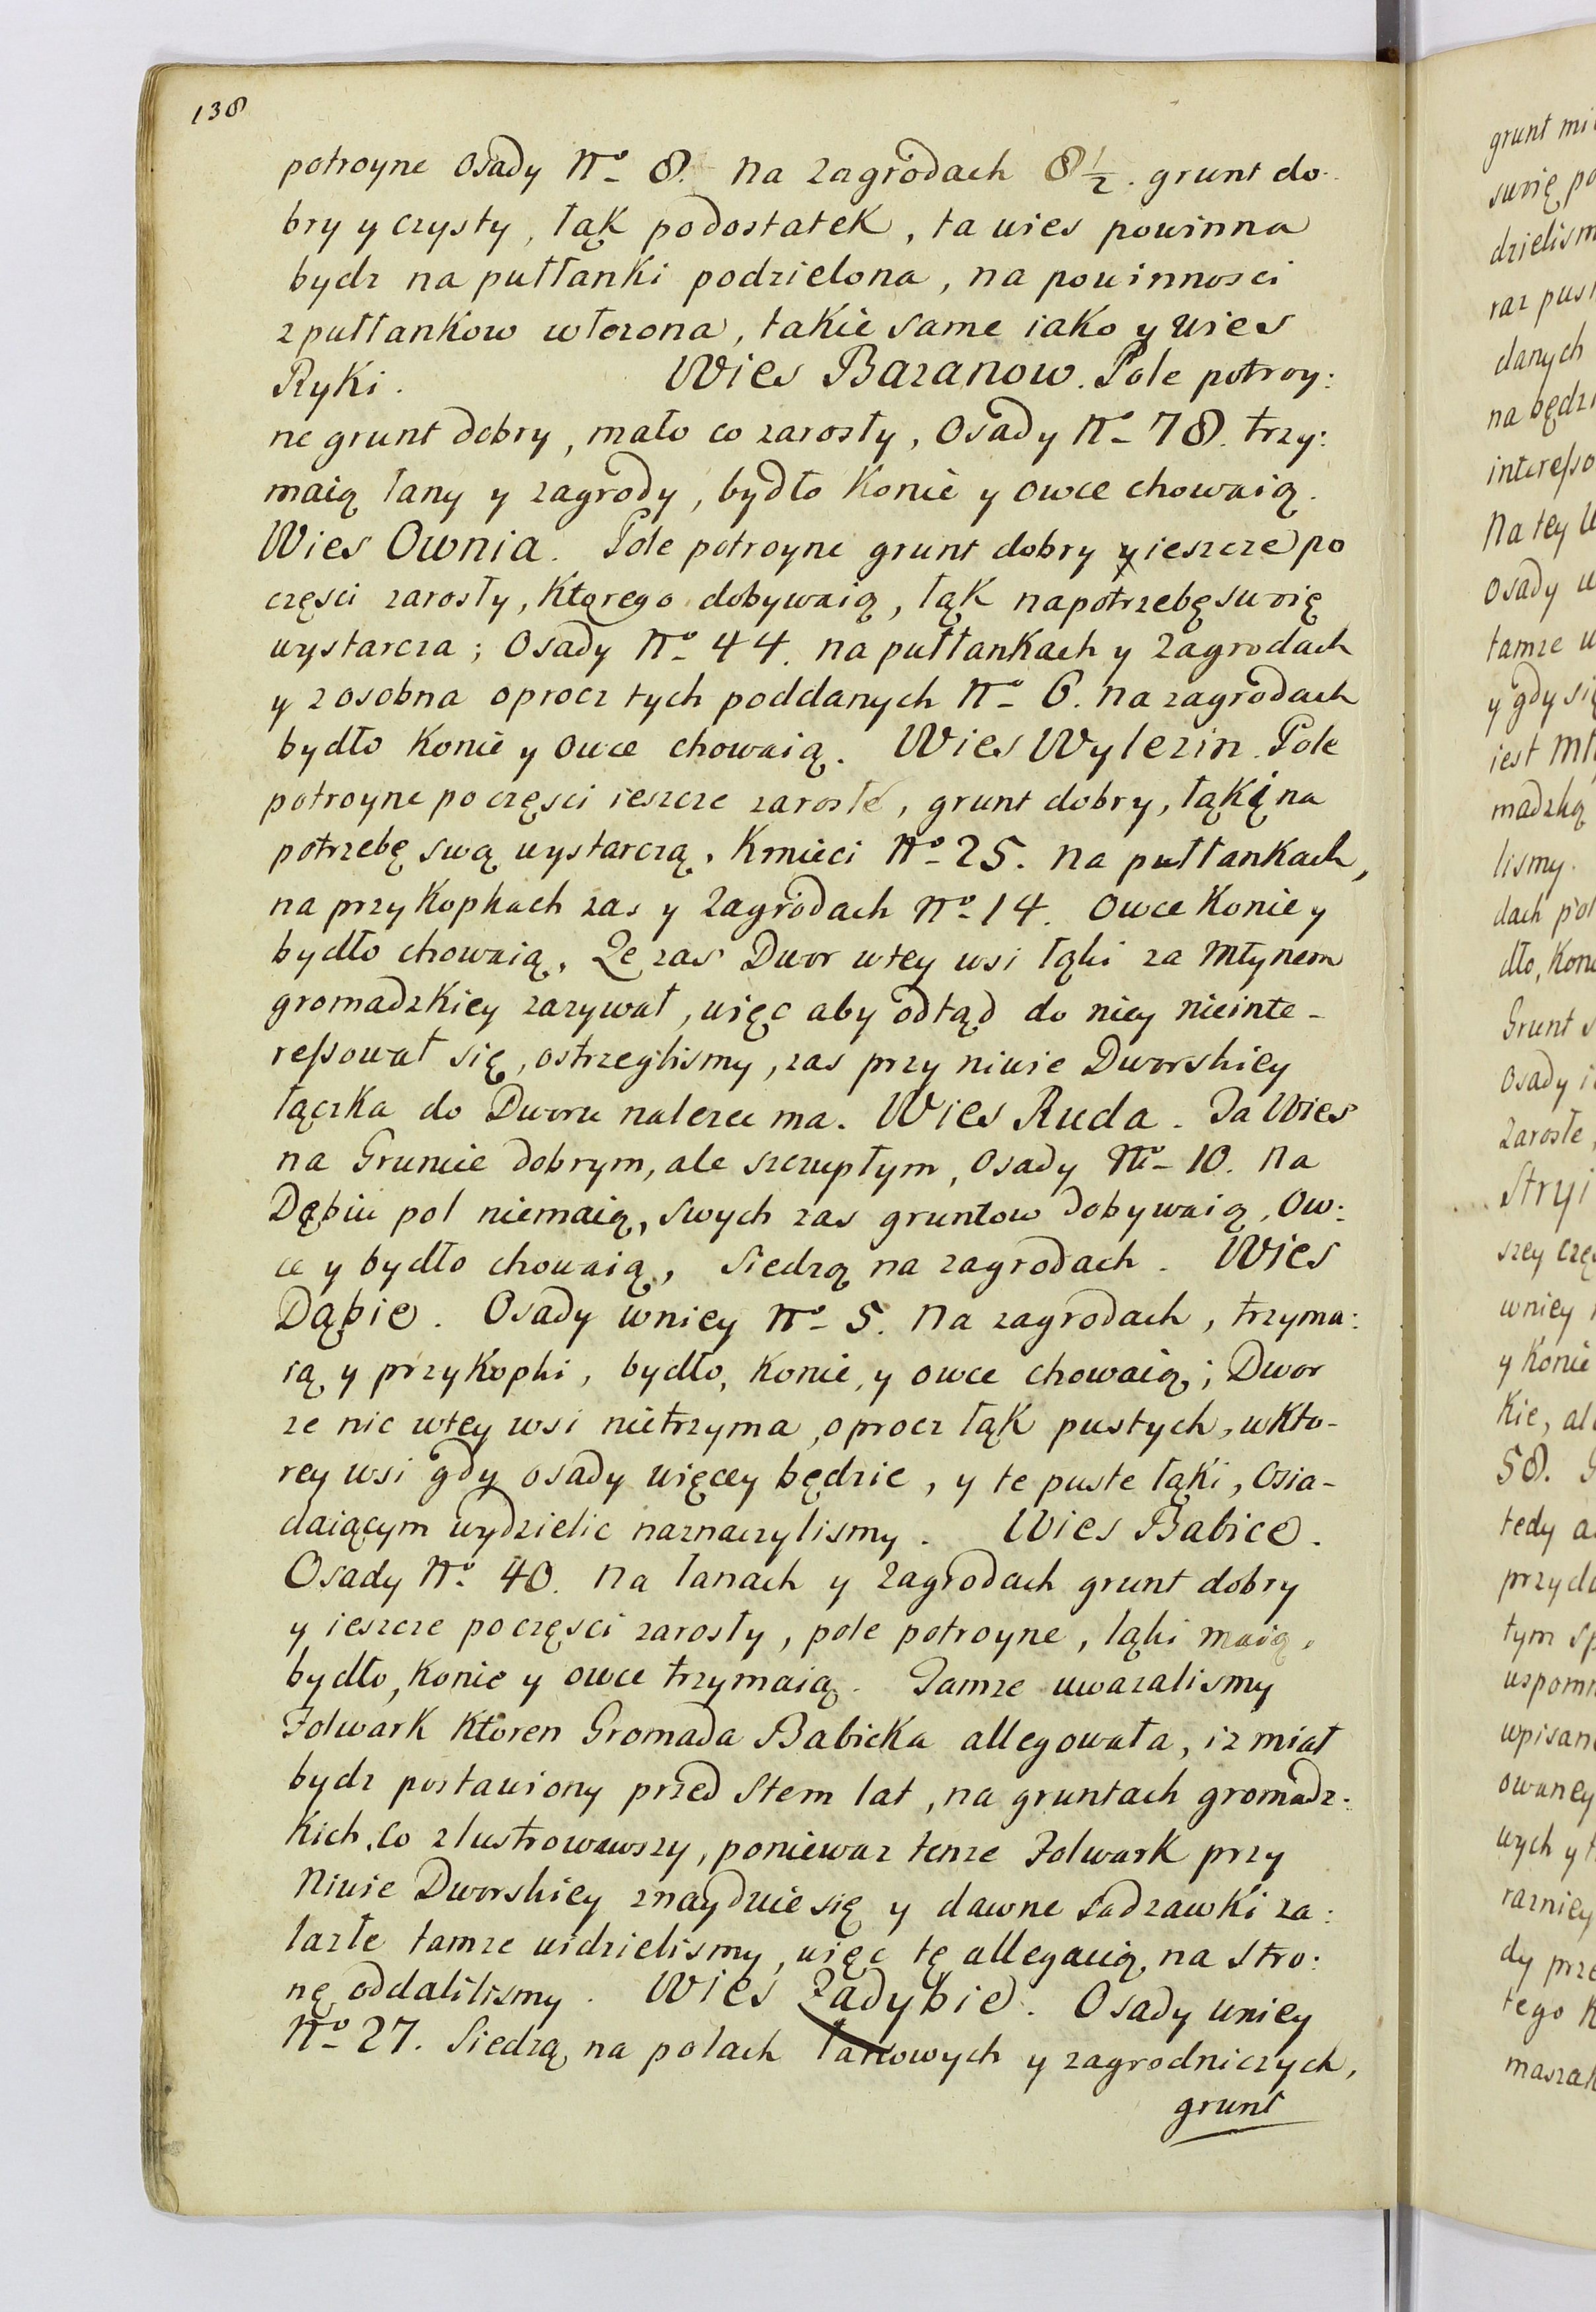 138
potroyne Osady No 8. na zagrodach 8 1/2. grunt do-
bry y czysty, łąk podostatek, ta wies powinna
bydz na pułłanki podzielona, na powinnosci
z pułłankow włozona, takie same iako y wies
Ryki. Wies Bazanow. Pole potroy:
ne grunt dobry, mało co zarosły, Osady No 78. trzy:
maią łany y zagrody, bydło Konie y owce chowaią.
Wies Ownia. Pole potroyne grunt dobry y ieszcze po
częsci zarosły, Ktorego dobywaią, łąk na potrzebę swoię
wystarcza; Osady No 44. na pułłankach y zagrodach
y zosobna oprocz tych poddanych No 6. na zagrodach
bydło Konie y owce chowaią. Wies Wylezin. Pole
potroyne po częsci ieszcze zarosłe, grunt dobry, łąki na
potrzebę swą wystarczą, Kmieci No 25. na pułłankach,
na przykopkach zas y zagrodach No 14. Owce Konie y
bydło chowaią, Ze zas Dwor w tey wsi łąki za Młynem
gromadzkiey zazywał, więc aby odtąd do niey nieinte-
ressował się, ostrzeglismy, zas przy niwie Dworskiey
łączka do Dworu nalezec ma. Wies Ruda. Ta Wies
na Gruncie dobrym, ale szczupłym, Osady No 10. na
Dębiu pol niemaią, swych zas gruntow dobywaią, Ow:
ce y bydło chowaią, Siedzą na zagrodach. Wies
Dąbie. Osady w niey No 5. na zagrodach, trzyma:
ią y przykopki, bydło, Konie, y owce chowaią; Dwor
ze nic w tey wsi nietrzyma, oprocz łąk pustych, w Kto-
rey wsi gdy osady więcey będzie, y te puste łąki, Osia-
daiącym wydzielic naznaczylismy. Wies Babice.
Osady No 40. na łanach y zagrodach grunt dobry
y ieszcze po częsci zarosły, pole potroyne, łąki maią,
bydło, Konie y owce trzymaią. Tamze uwazalismy
Folwark Ktoren Gromada Babicka allegowała, iz miał
bydz postawiony przed Stem lat, na gruntach gromadz-
Kich, co zlustrowawszy, poniewaz tenze Folwark przy
Niwie Dworskiey znayduie się y dawne Sadzawki za:
lazłe tamze widzielismy, więc tę allegacią na stro:
nę oddalilismy. Wies Zadybie. Osady w niey
No 27. Siedzą na polach łanowych y zagrodniczych,
grunt